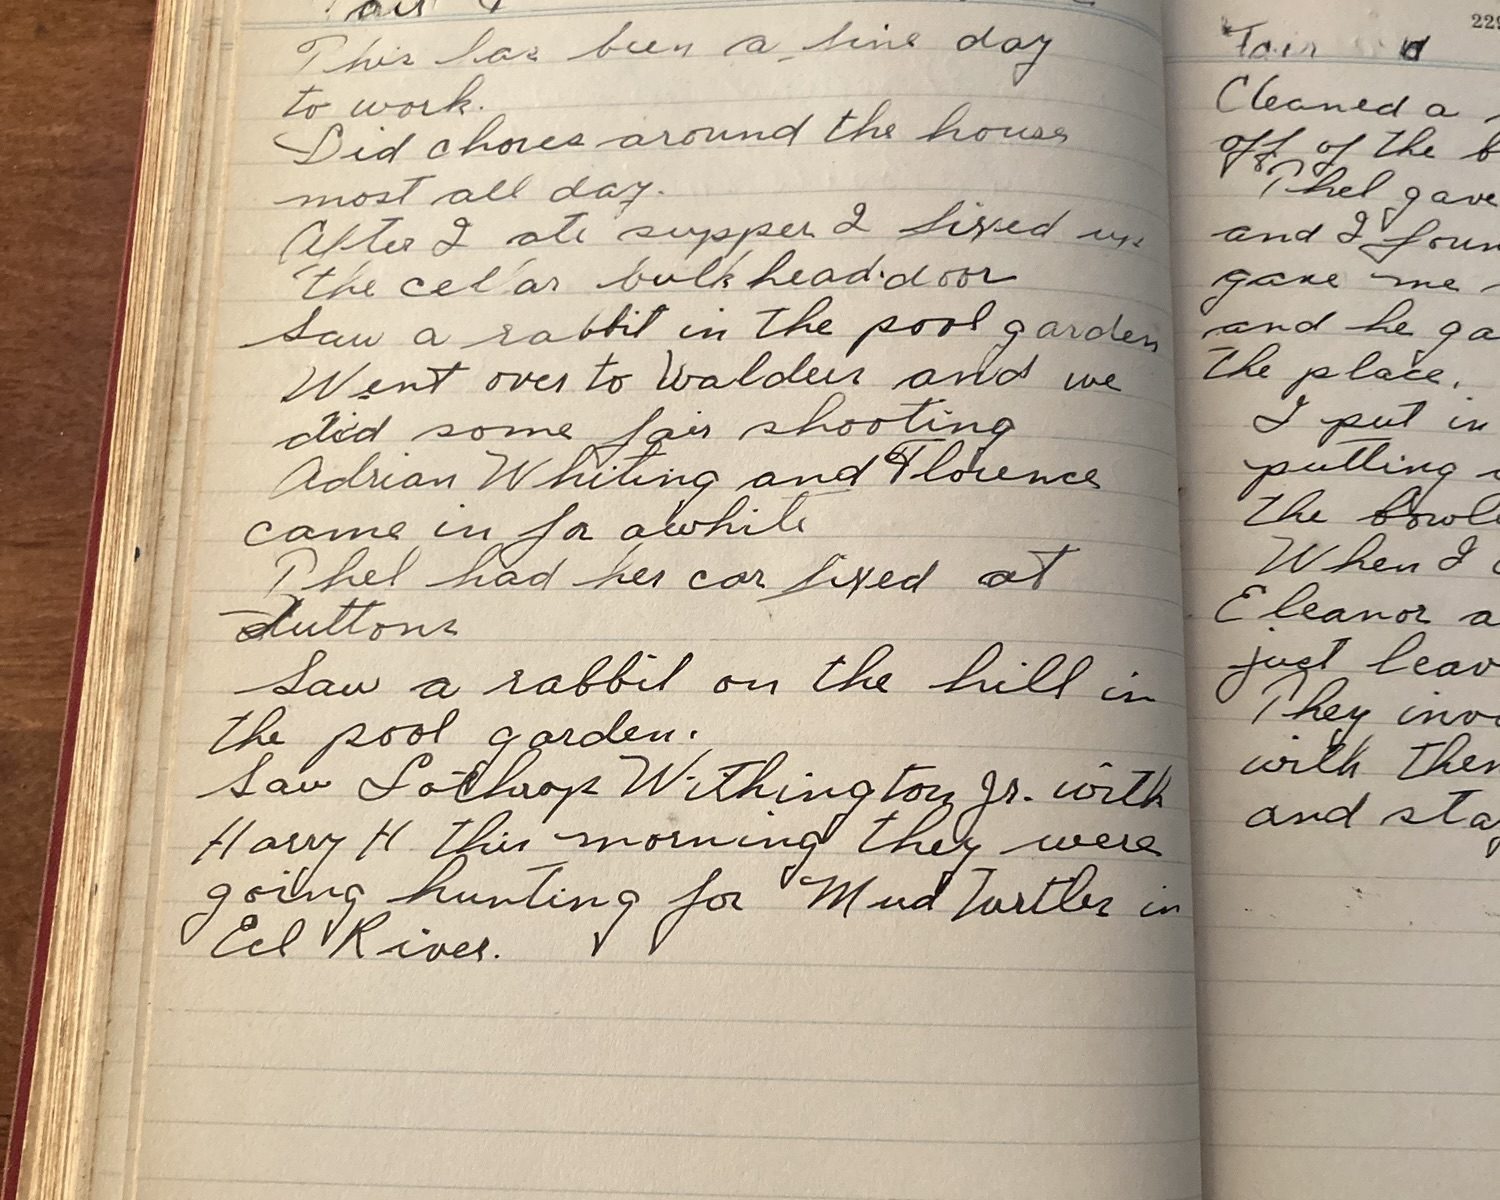 Fair
This has been a fine day
to work.
Did chores around the house
most all day.
After I ate supper I fixed up
the cellar bulkhead door
Saw a rabbit in the pool garden
Went over to Waldens and we
did some fair shooting
Adrian Whiting and Florence
came in for awhile
Phel had her car fixed at
Duttons
Saw a rabbit on the hill in
the pool garden.
Saw Lothrop Withington Jr. with
Harry H this morning they were
going hunting for Mud Turtles in
Eel River.
229
Fair
Cleaned a
off of the
Phel gave
and I
gave me
and he
the place.
I put in
putting
the
When I
Eleanor
just
They
with
and